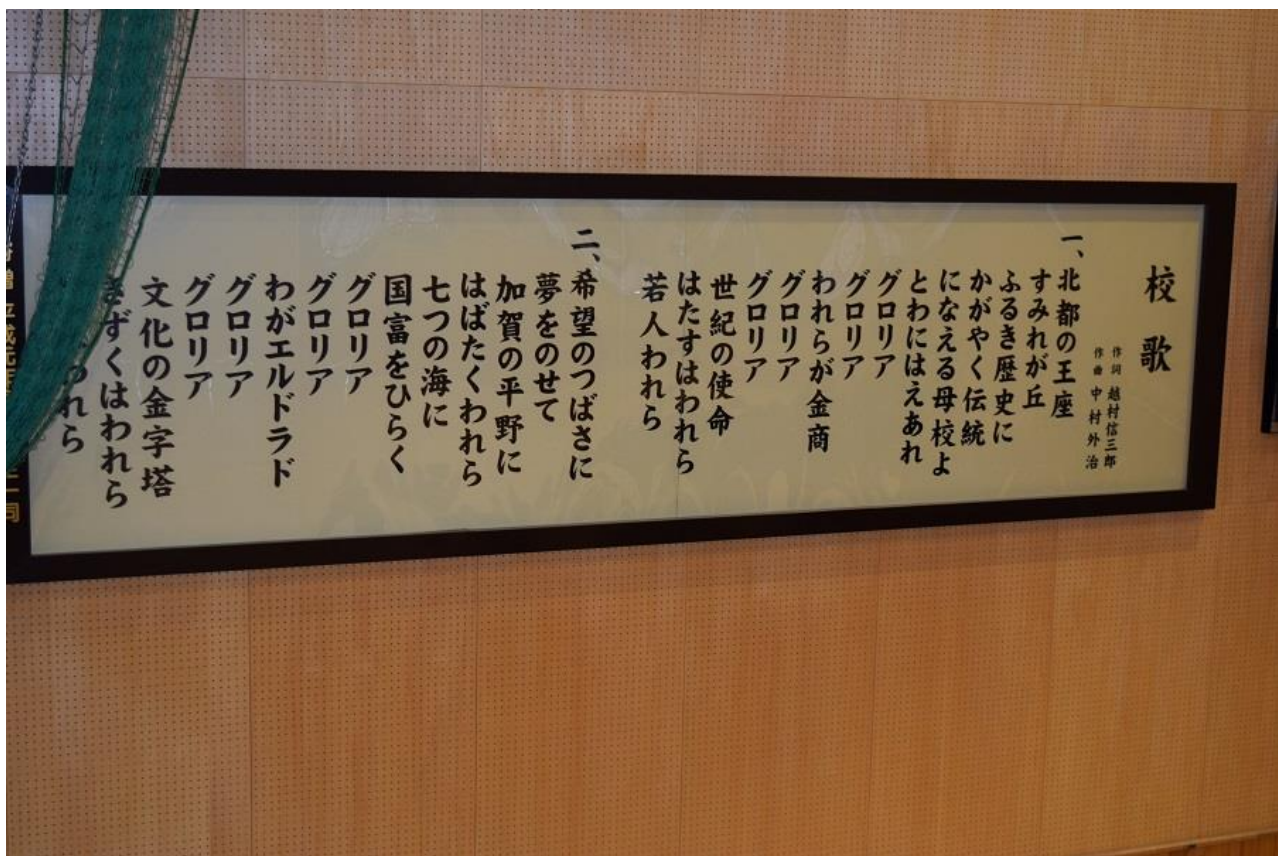 校歌
作詞 越村信三郎
作曲 中村外治
一、北都の王座
すみれが丘
ふるき歴史に
かがやく伝統
になえる母校よ
とわにはえあれ
グロリア
グロリア
われらが金商
グロリア
グロリア
世紀の使命
はたすはわれら
若人われら
二、希望のつばさに
夢をのせて
加賀の平野に
はばたくわれら
七つの海に
国富をひらく
グロリア
グロリア
わがエルドラド
グロリア
グロリア
文化の金字塔
きずくはわれら
われら